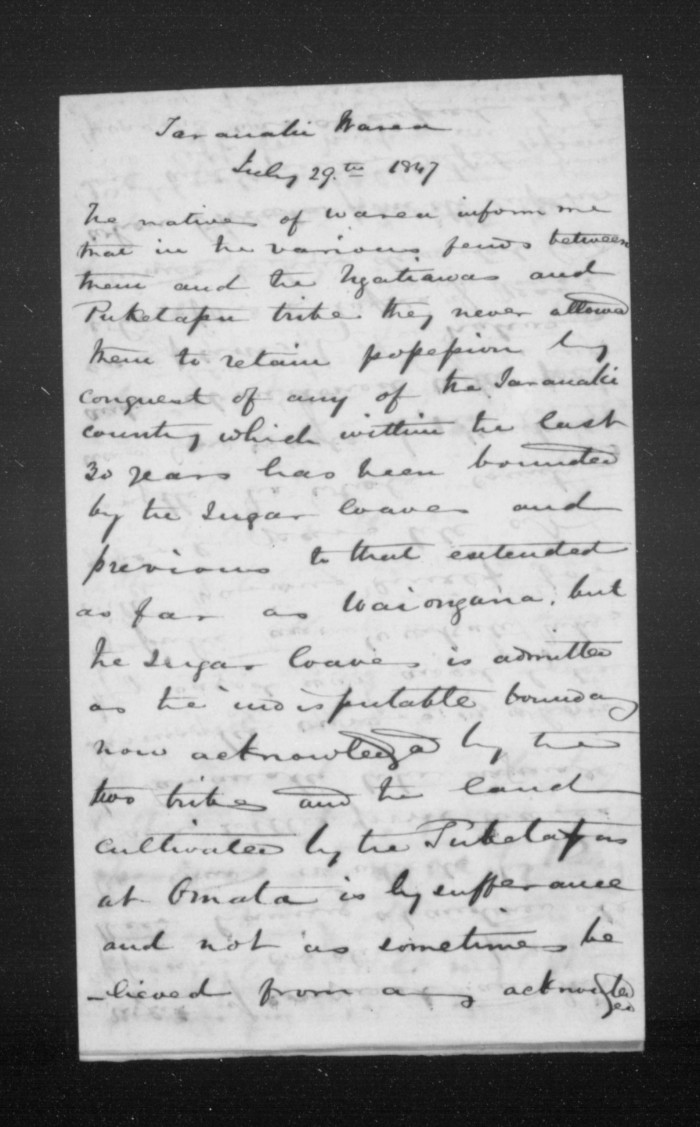 Taranaki Warea
July 29.th 1847
The natives of Warea inform me
that in the various feuds between
them and the Ngatiawas and
Puketapu tribe they never allowed
them to retain possession by
conquest of any of the Taranaki
country which within the last
30 years has been bounded
by the Sugar loaves and
previous to that extended
as far as Waiongana, but
the Sugar loaves is admitted
as the indisputable boundary
now acknowledged by the
two tribes and the land
cultivated by the Puketapus
at Omata is by sufferance
and not as sometimes be
-lieved from any acknowledged